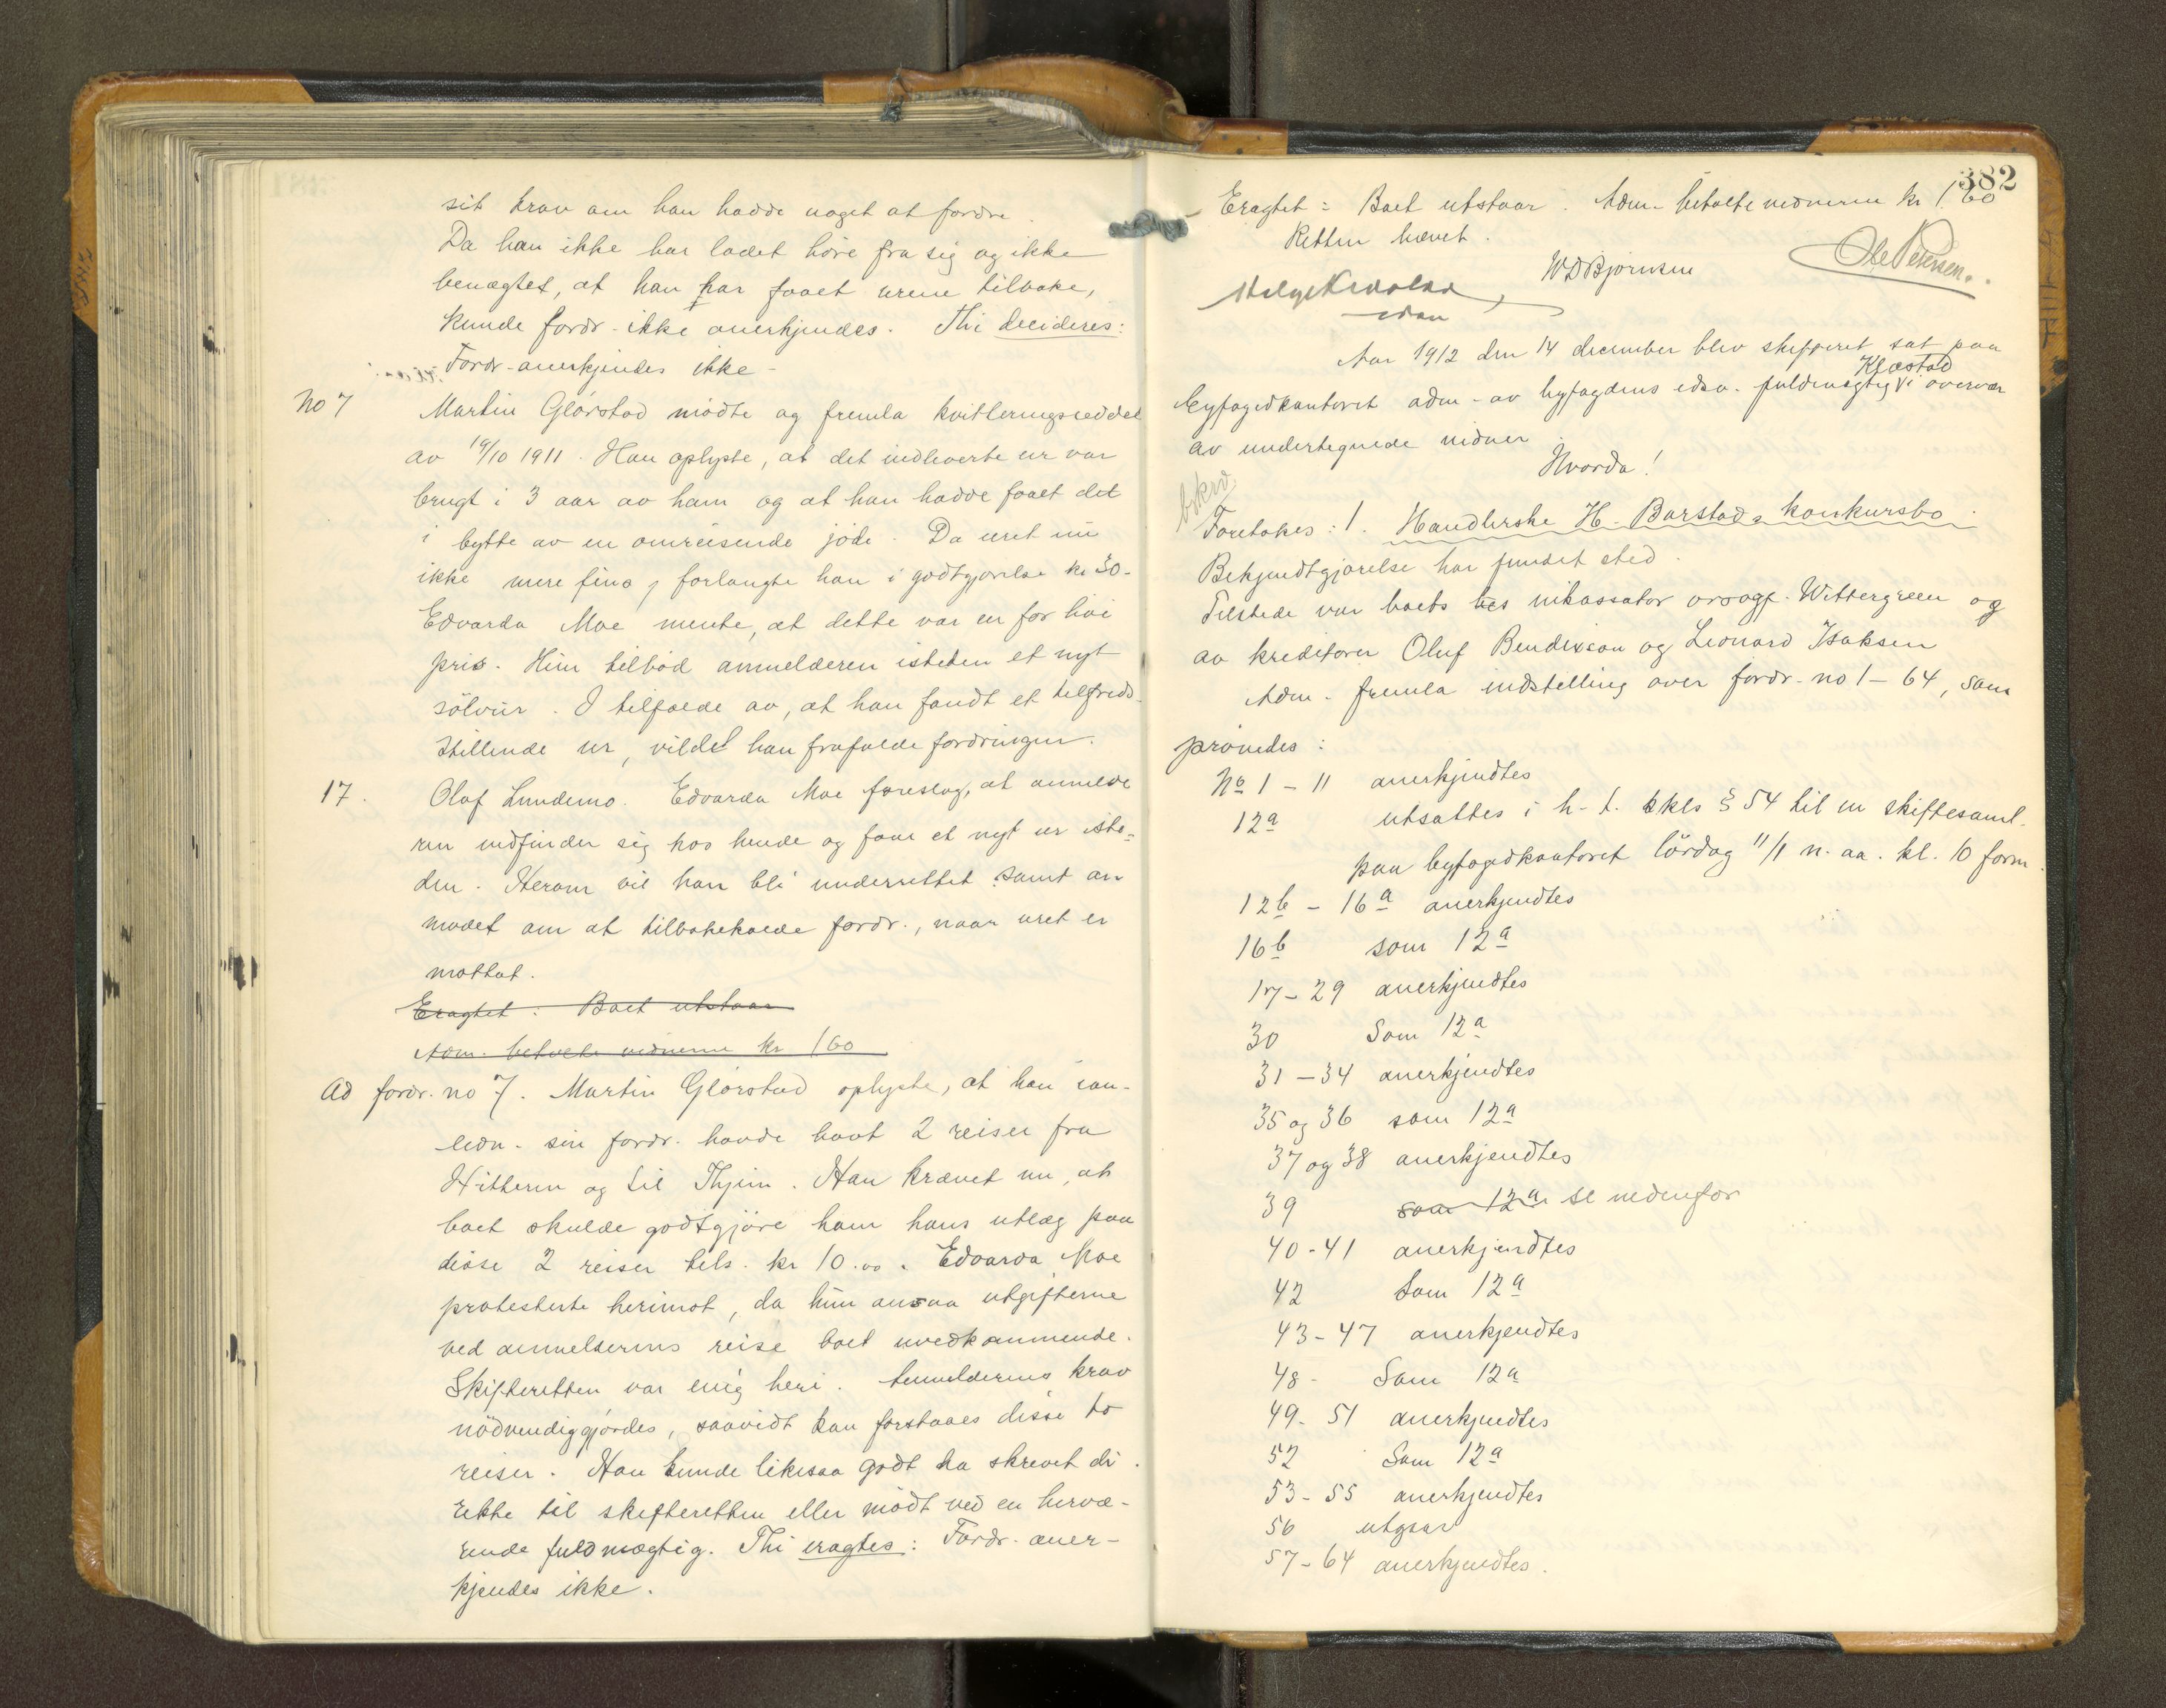 sit krav om han hadde noget at fordre.
Da han ikke har ladet höre fra sig og ikke
benægtet, at han har faaet urene tilbake,
kunde fordr. ikke anerkjendes. Thi decideres:
Fordr. anerkjendes ikke -
No 7 Martin Glörstad mödte og fremla kvitteringsseddel
av 19/10 1911. Han oplyste, at det indleverte ur var
brugt i 3 aar av ham og at han hadde faaet det
i bytte av en omreisende jöde. Da uret nu
ikke mere fins, forlangte han i godtgjörelse kr 30.-
Edvarda Moe mente, at dette var en for höi
pris. Hun tilböd anmelderen isteden et nyt
sölvur. I tilfælde av, at han fandt et tilfreds-
stillende ur, vilde han frafalde fordringen.
17. Olaf Lundemo. Edvarda Moe foreslog, at anmelde
ren indfinder sig hos hende og faar et nyt ur iste-
den. Herom vil han bli underrettet samt an
modet om at tilbakekalde fordr., naar uret er
mottat.
Eragtet: Boet utstaar
Adm. betalte vidnerne kr 1 60
Ad fordr. no 7. Martin Glörstad oplyste, at han i an-
ledn. sin fordr. havde havt 2 reiser fra
Hitteren og til Thjem. Han krævet nu, at
boet skulde godtgjöre ham hans utlæg paa
disse 2 reiser tils. kr 10.00. Edvarda Moe
protesterte herimot, da hun ansaa utgifterne
ved anmelderens reise boet uvedkommende.
Skifteretten var enig heri. Anmelderens krav
nödvendiggjordes, saavidt kan forstaaes disse to
reiser. Han kunde likesaa godt ha skrevet di-
rekte til skifteretten eller mödt ved en hervæ-
rende fuldmægtig. Thi eragtes: Fordr. aner-
kjendes ikke.
382
Eragtet: Boet utstaar. Adm. betalte vidnerne kr 1.60
Retten hævet.
W D Bjørnsen
Ole Petersen.
Aar 1912 den 14 december blev skifteret sat paa
Klæstad
byfogedkontoret adm. av byfogdens edsv. fuldmægtig i overvær
av undertegnede vidner
Hvorda!
Foretokes: 1. Handlerske H. Barstads konkursbo.
Bekjendtgjörelse har fundet sted.
Tilstede var boets inkassator ovsagf. Wittergreen og
av kreditorer Oluf Bendixson og Leonard Isaksen
Adm. fremla indstilling over fordr. no 1 - 64, som
prövedes:
No 1 - 11 anerkjendtes
12a utsattes i h. t. kkls § 54 til en skiftesaml.
paa byfogedkontoret lördag 11/1 n. aa. kl. 10 form.
12b - 16a anerkjendtes
16b som 12a
17 - 29 anerkjendtes
30 Som 12a
31 - 34 anerkjendtes
35 og 36 som 12a
37 og 38 anerkjendtes
39 som 12a se nedenfor
40 - 41 anerkjendtes
42 Som 12a
43 - 47 anerkjendtes
48 - Som 12a
49 - 51 anerkjendtes
52 Som 12a
53 - 55 anerkjendtes
56 utgaar
57 - 64 anerkjendtes.